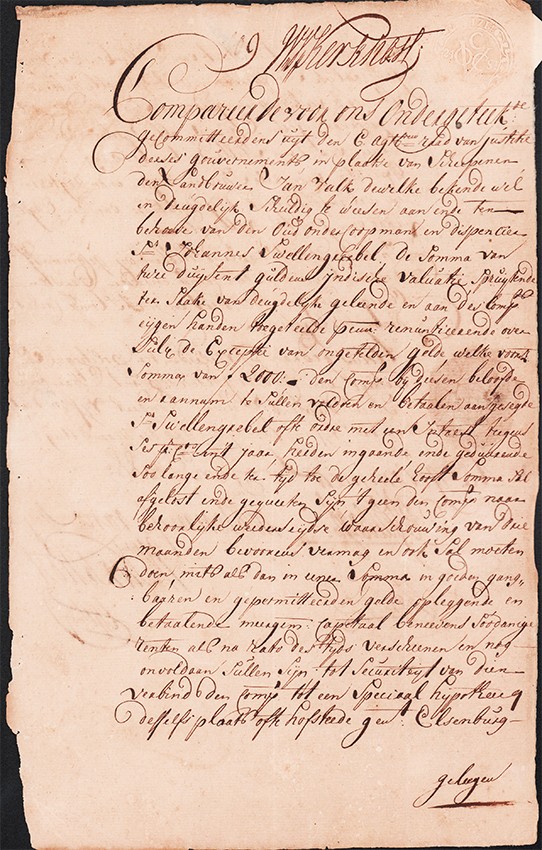 Compareerde voor ons ondergeteek:de
gecommitteerdens uyt den E. agtb: raad van justitie
deeses gouvernements in plaatse van Scheepenen
den Landbouwer Jan Valk dewelke bekende wel
en deugdelijk schuldig te weesen aan ende ten
behoeve van den Oud ondercoopman en dispencier
Sr. Johannes Swellengrebel de Somma van
twee duysent guldens jndische valuatie Spruytende
ter Saake van deugdelijke geleende en aan des Compts
eijgen handen toegetelde renuntieerende over
Sulx de Exceptie van ongetelden gelde welke voorsz
Somma van ƒ 2000:- den Compt bij deesen beloofde
en aannam te Sullen voldoen en betaalen aan gesegde
Sr. Swellengrebel ofte ordre met een Intrest teegens
Ses p: Cto int jaar heeden ingaande ende geduurende
Soo lange ende ter tijd toe de geheele Somma Sal
afgelost ende Sijn 't geen den Compt naar
behoorlijke wederseijdse waarschouwing van drie
maanden bevoorens vermag en ook Sal moeten
doen mits als dan in eene Somma in goeden gang-
baaren en gepermitteerden gelde opleggende en
betaalende capitaal beneevens Soodanige
renten als na rato des tijds verscheenen en nog
onvoldaan Sullen Sijn tot Securityt van dien
verbind den Compt tot een Speciaal hypotheecq
desselfs plaats ofte hofsteede gent: Elsenburg-
geleegen